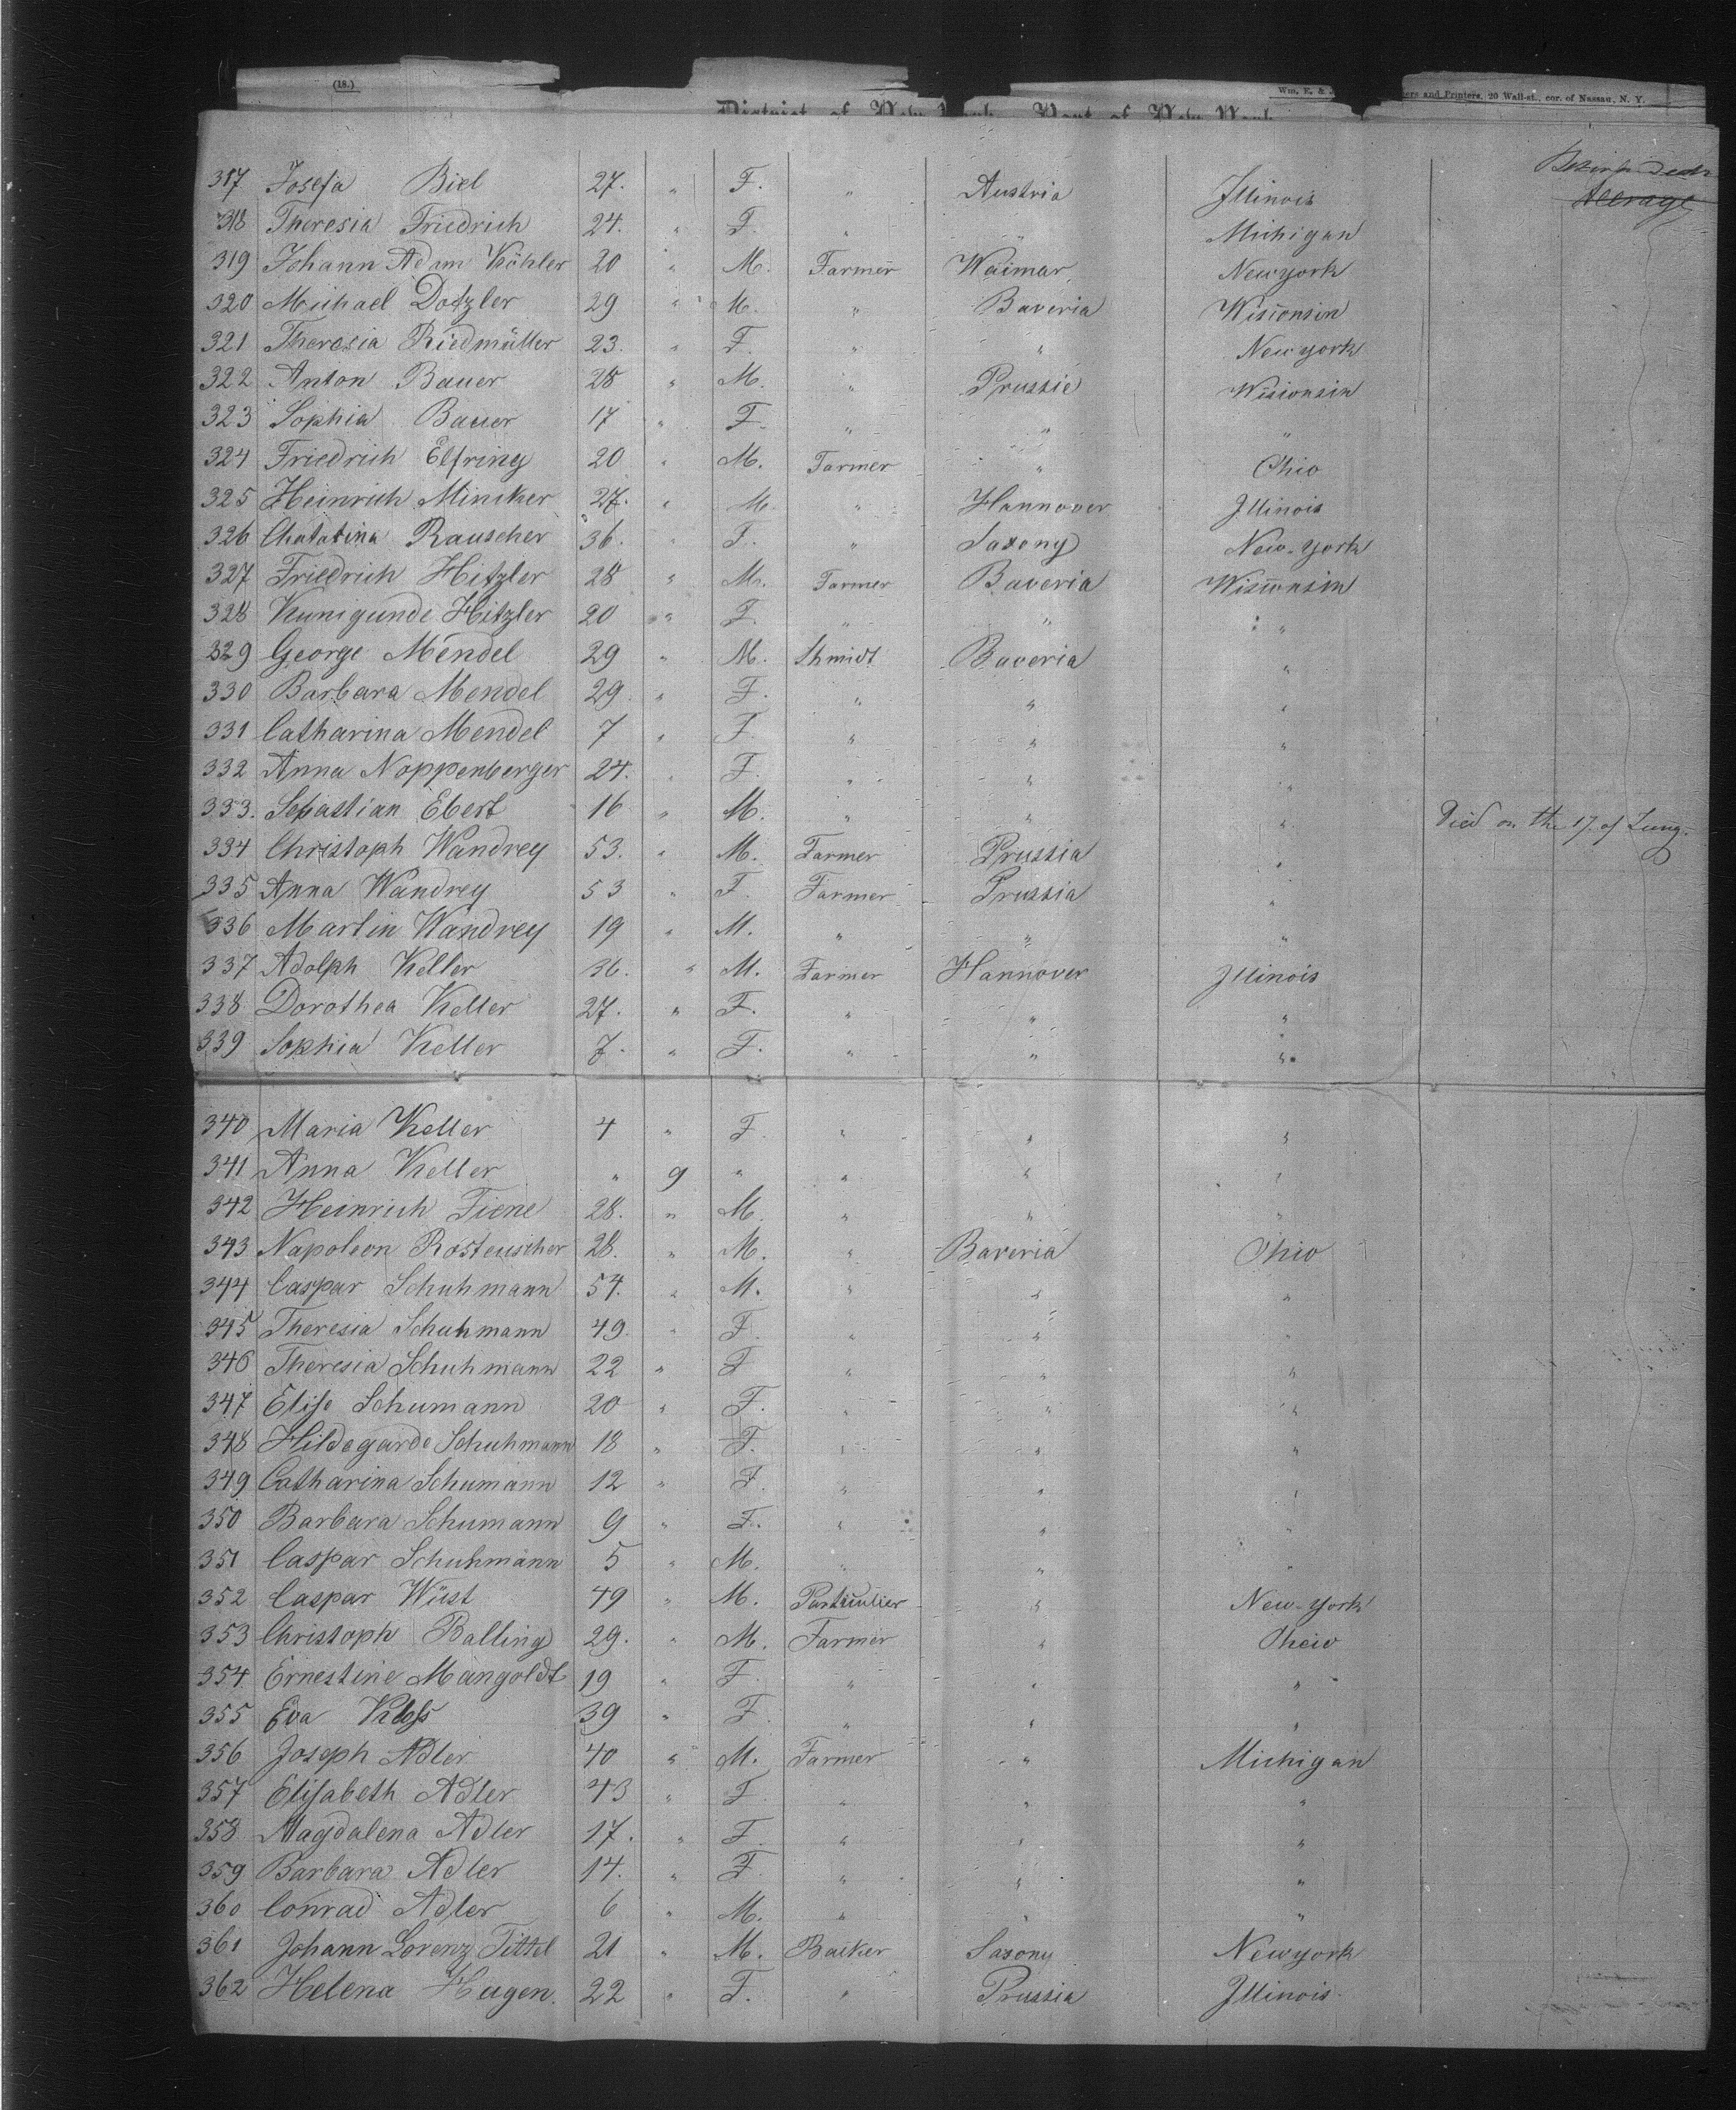 (18.)
Wm. E. & ers and Printers, 20 Wall-st., cor. of Nassau, N. Y.
District of New York Port of New York
317 Josefa Biel 27. " F. " Austria Illinois
Average
318 Theresia Friedrich 24. " F. " " Michigan
319 Johann Adam Köhler 20 " M. Farmer Waimar Newyork
320 Michael Dotzler 29 " M. " Baveria Wisconsin
321 Theresia Riedmüller 23. " F. " " Newyork
322 Anton Bauer 28 " M. " Prussie Wisconsin
323 Sophia Bauer 17 " F. " " "
324 Friedrich Elfring 20 " M. Farmer " Ohio
325 Heinrich Mincker 27. " M. " Hannover Illinois
326 Chatarina Rauscher 36. " F. " Saxony New-York
327 Friedrich Hitzler 28 " M. Farmer Baveria Wisconsin
328 Kunigunde Hitzler 20 " F. " " "
329 George Mendel 29 " M. Shmidt Baveria "
330 Barbara Mendel 29 " F. " " "
331 Catharina Mendel 7 " F. " " "
332 Anna Noppenberger 24. " F. " " "
333. Sebastian Ebert 16 " M. " " " Died on the 17. of Lung.
334 Christoph Wandrey 53. " M. Farmer Prussia "
335 Anna Wandrey 53 " F. Farmer Prussia "
336 Martin Wandrey 19 " M. " " "
337 Adolph Keller 36. " M. Farmer Hannover Illinois
338 Dorothea Keller 27. " F. " " "
339 Sophia Keller 7. " F. " " "
340 Maria Keller 4 " F. " " "
341 Anna Keller " 9 " " " "
342 Heinrich Fiene 28. " M. " " "
343 Napoleon Rosteuscher 28. " M. " Baveria Ohio
344 Caspar Schuhmann 54. " M. " " "
345 Theresia Schuhmann 49. " F. " " "
346 Theresia Schuhmann 22 " F " " "
347 Elise Schumann 20 " F. " " "
348 Hildegarde Schuhmann 18 " F. " " "
349 Catharina Schumann 12 " F. " " "
350 Barbara Schumann 9 " F. " " "
351 Caspar Schuhmann 5 " M. " " "
352 Caspar Wüst 49 " M. Particulier " New-York
353 Christoph Balling 29. " M. Farmer " Oheio
354 Ernestine Mangoldt 19 " F. " " "
355 Eva Kloss 39 " F. " " "
356 Joseph Adler 40 " M. Farmer " Michigan
357 Elisabeth Adler 43 " F. " " "
358 Magdalena Adler 17. " F. " " "
359 Barbara Adler 14. " F. " " "
360 Conrad Adler 6 " M. " " "
361 Johann Lorenz Tittel 21 " M. Backer Saxony Newyork
362 Helena Hagen. 22 " F. " Prussia Illinois.